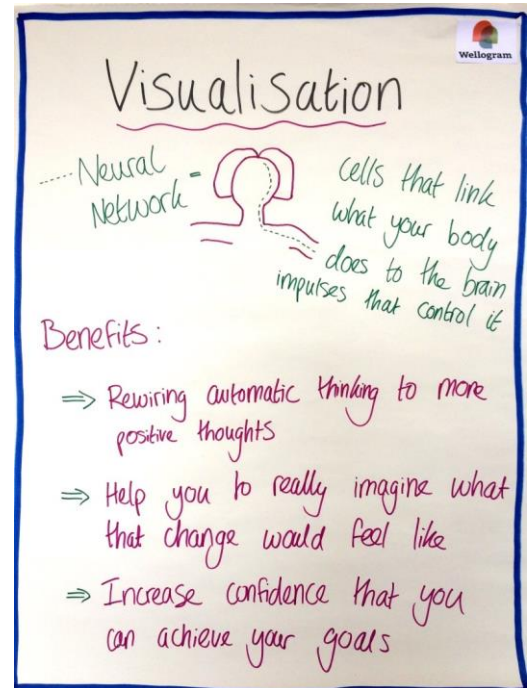 Wellogram
Visualisation
---- Neural
Network -
cells that link
what your body
does to the brain
impulses that control it
Benefits:
⇒ Rewiring automatic thinking to more
positive thoughts
⇒ Help you to really imagine what
that change would feel like
⇒ Increase confidence that you
can achieve your goals